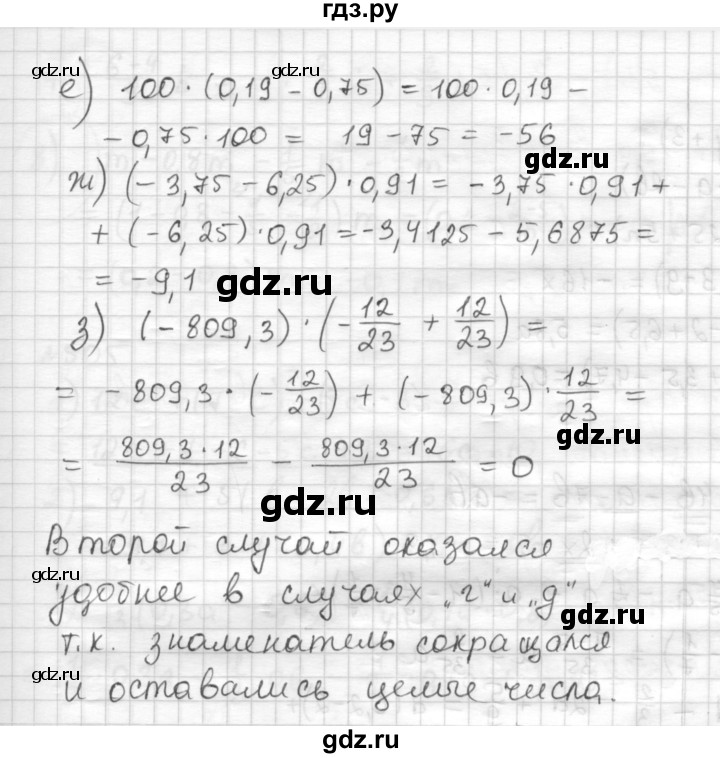 гдз.ру
gdz.ru gdz.ru
е) 100 · (0,19 - 0,75) = 100 · 0,19 -
- 0,75 · 100 = 19 - 75 = -56
gdz.ru
ж) (- 3,75 - 6,25) · 0,91 = - 3,75 · 0,91 +
gdz.ru
+ (- 6,25) · 0,91 = -3,4125 - 5,6875 =
= - 9,1 gdz.ru
з) (- 809,3) · (- 12/23 + 12/23) =
= - 809,3 · (- 12/23) + (- 809,3) · 12/23 =
gdz.ru
= 809,3 · 12 / 23 - 809,3 · 12 / 23 = 0
gdz.ru
Второй случай оказался
gdz.ru
удобнее в случаях „г“ и „д“
т.к. знаменатель сокращался
gdz.ru
и оставались целые числа.
gdz.ru